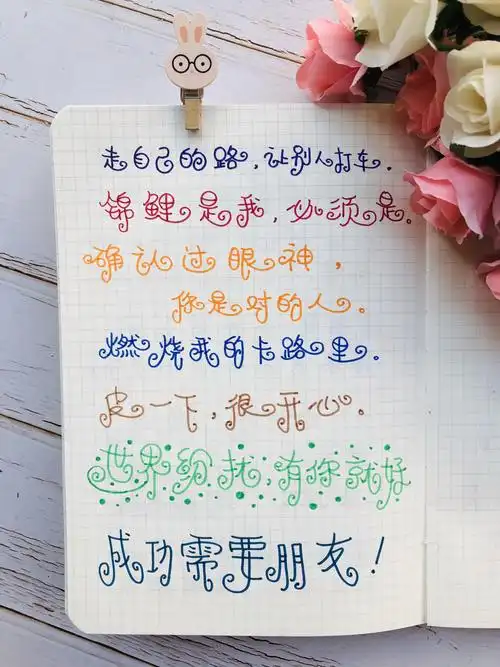 走自己的路,让别人打车.
锦鲤是我,必须是。
确认过眼神,
你是对的人。
燃烧我的卡路里。
皮一下,很开心。
世界纷扰,有你就好
成功需要朋友!